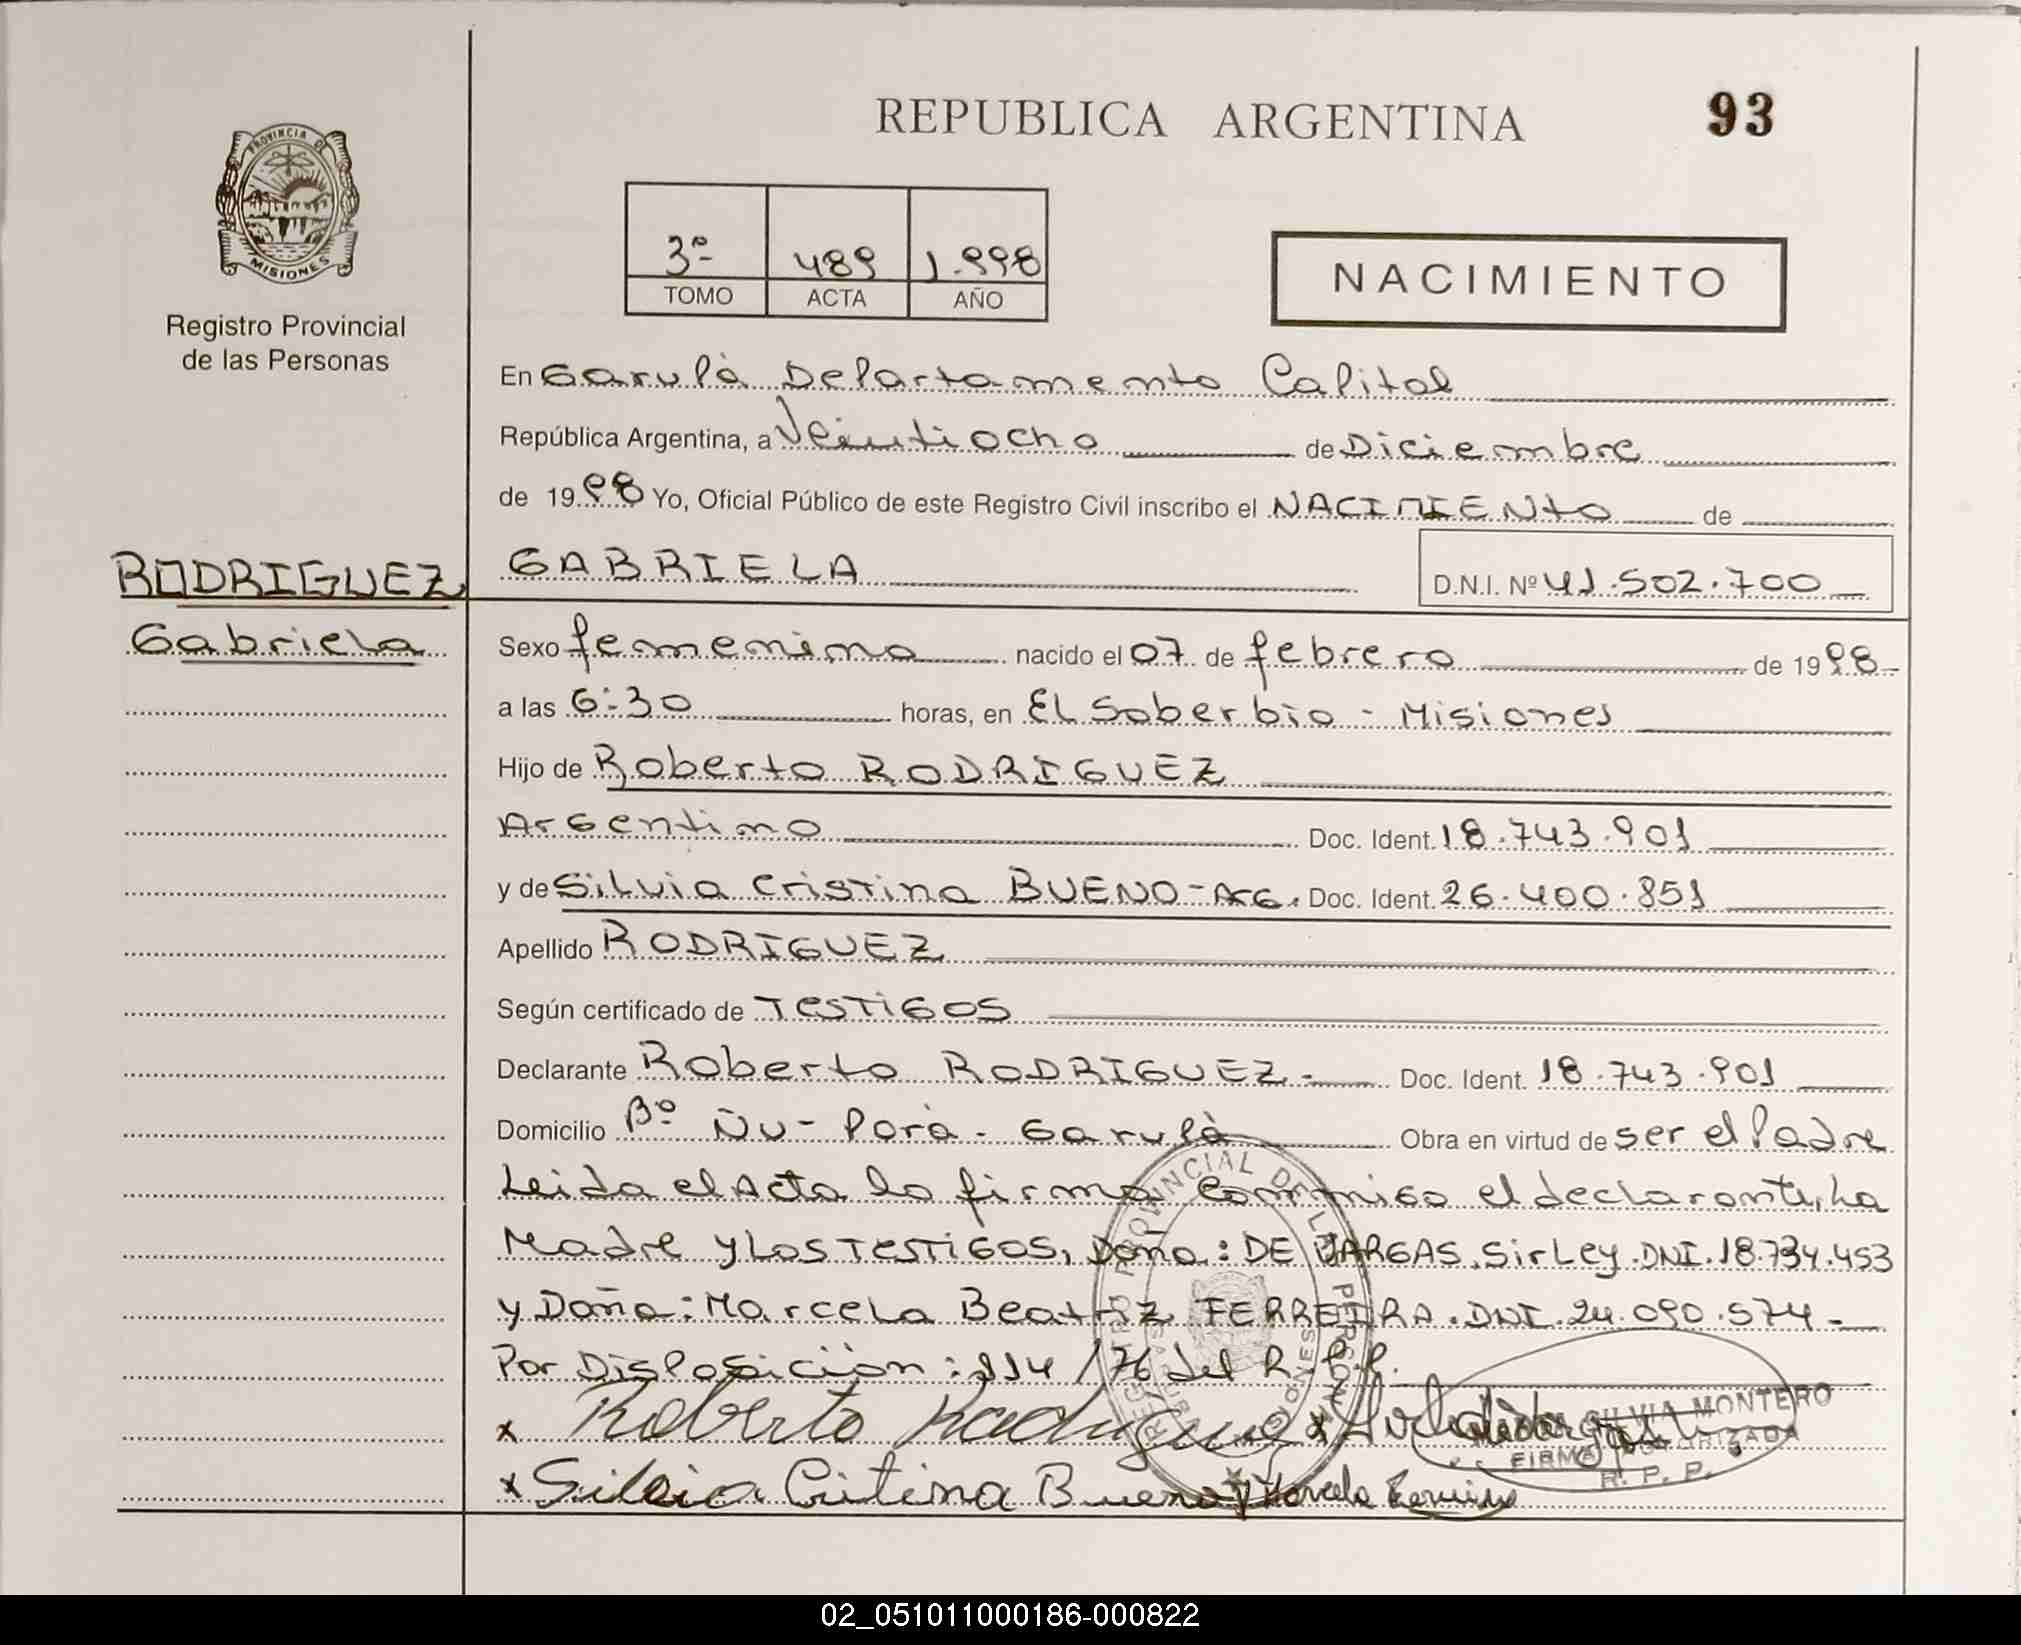 REPUBLICA ARGENTINA
93
PROVINCIA DE
MISIONES
Registro Provincial
de las Personas
3º 489 1.998
TOMO ACTA AÑO
NACIMIENTO
En Garupà Departamento Capital
República Argentina, a Veintiocho de Diciembre
de 1998 Yo, Oficial Público de este Registro Civil inscribo el NACIMIENto de
RODRIGUEZ GABRIELA D.N.I. Nº 41.502.700
Gabriela Sexo femenino nacido el 07 de febrero de 1998
a las 6:30 horas, en El Soberbio - Misiones
Hijo de Roberto RODRIGUEZ
Argentino Doc. Ident. 18.743.901
y de Silvia Cristina BUENO - ARG. Doc. Ident. 26.400.851
Apellido RODRIGUEZ
Según certificado de Testigos
Declarante Roberto RODRIGUEZ.- Doc. Ident. 18.743.901
Domicilio Bº Ñu - Porà - Garupà Obra en virtud de ser el Padre
Leida el Acta la firma conmigo el declarante, La
Madre y Los Testigos, Doña: DE VARGAS, Sirley. DNI. 18.734.453
y Doña: Marcela Beatriz FERREIRA. DNI. 24.090.574 -
Por Disposiciòn: 114/76 del R.P.P.
x Roberto Rodriguez x
SILVIA MONTERO
FIRMA AUTORIZADA
R. P. P.
x Silvia Cristina Bueno Marcela Ferreira
REGISTRO PROVINCIAL DE LAS PERSONAS
MISIONES
02_051011000186-000822